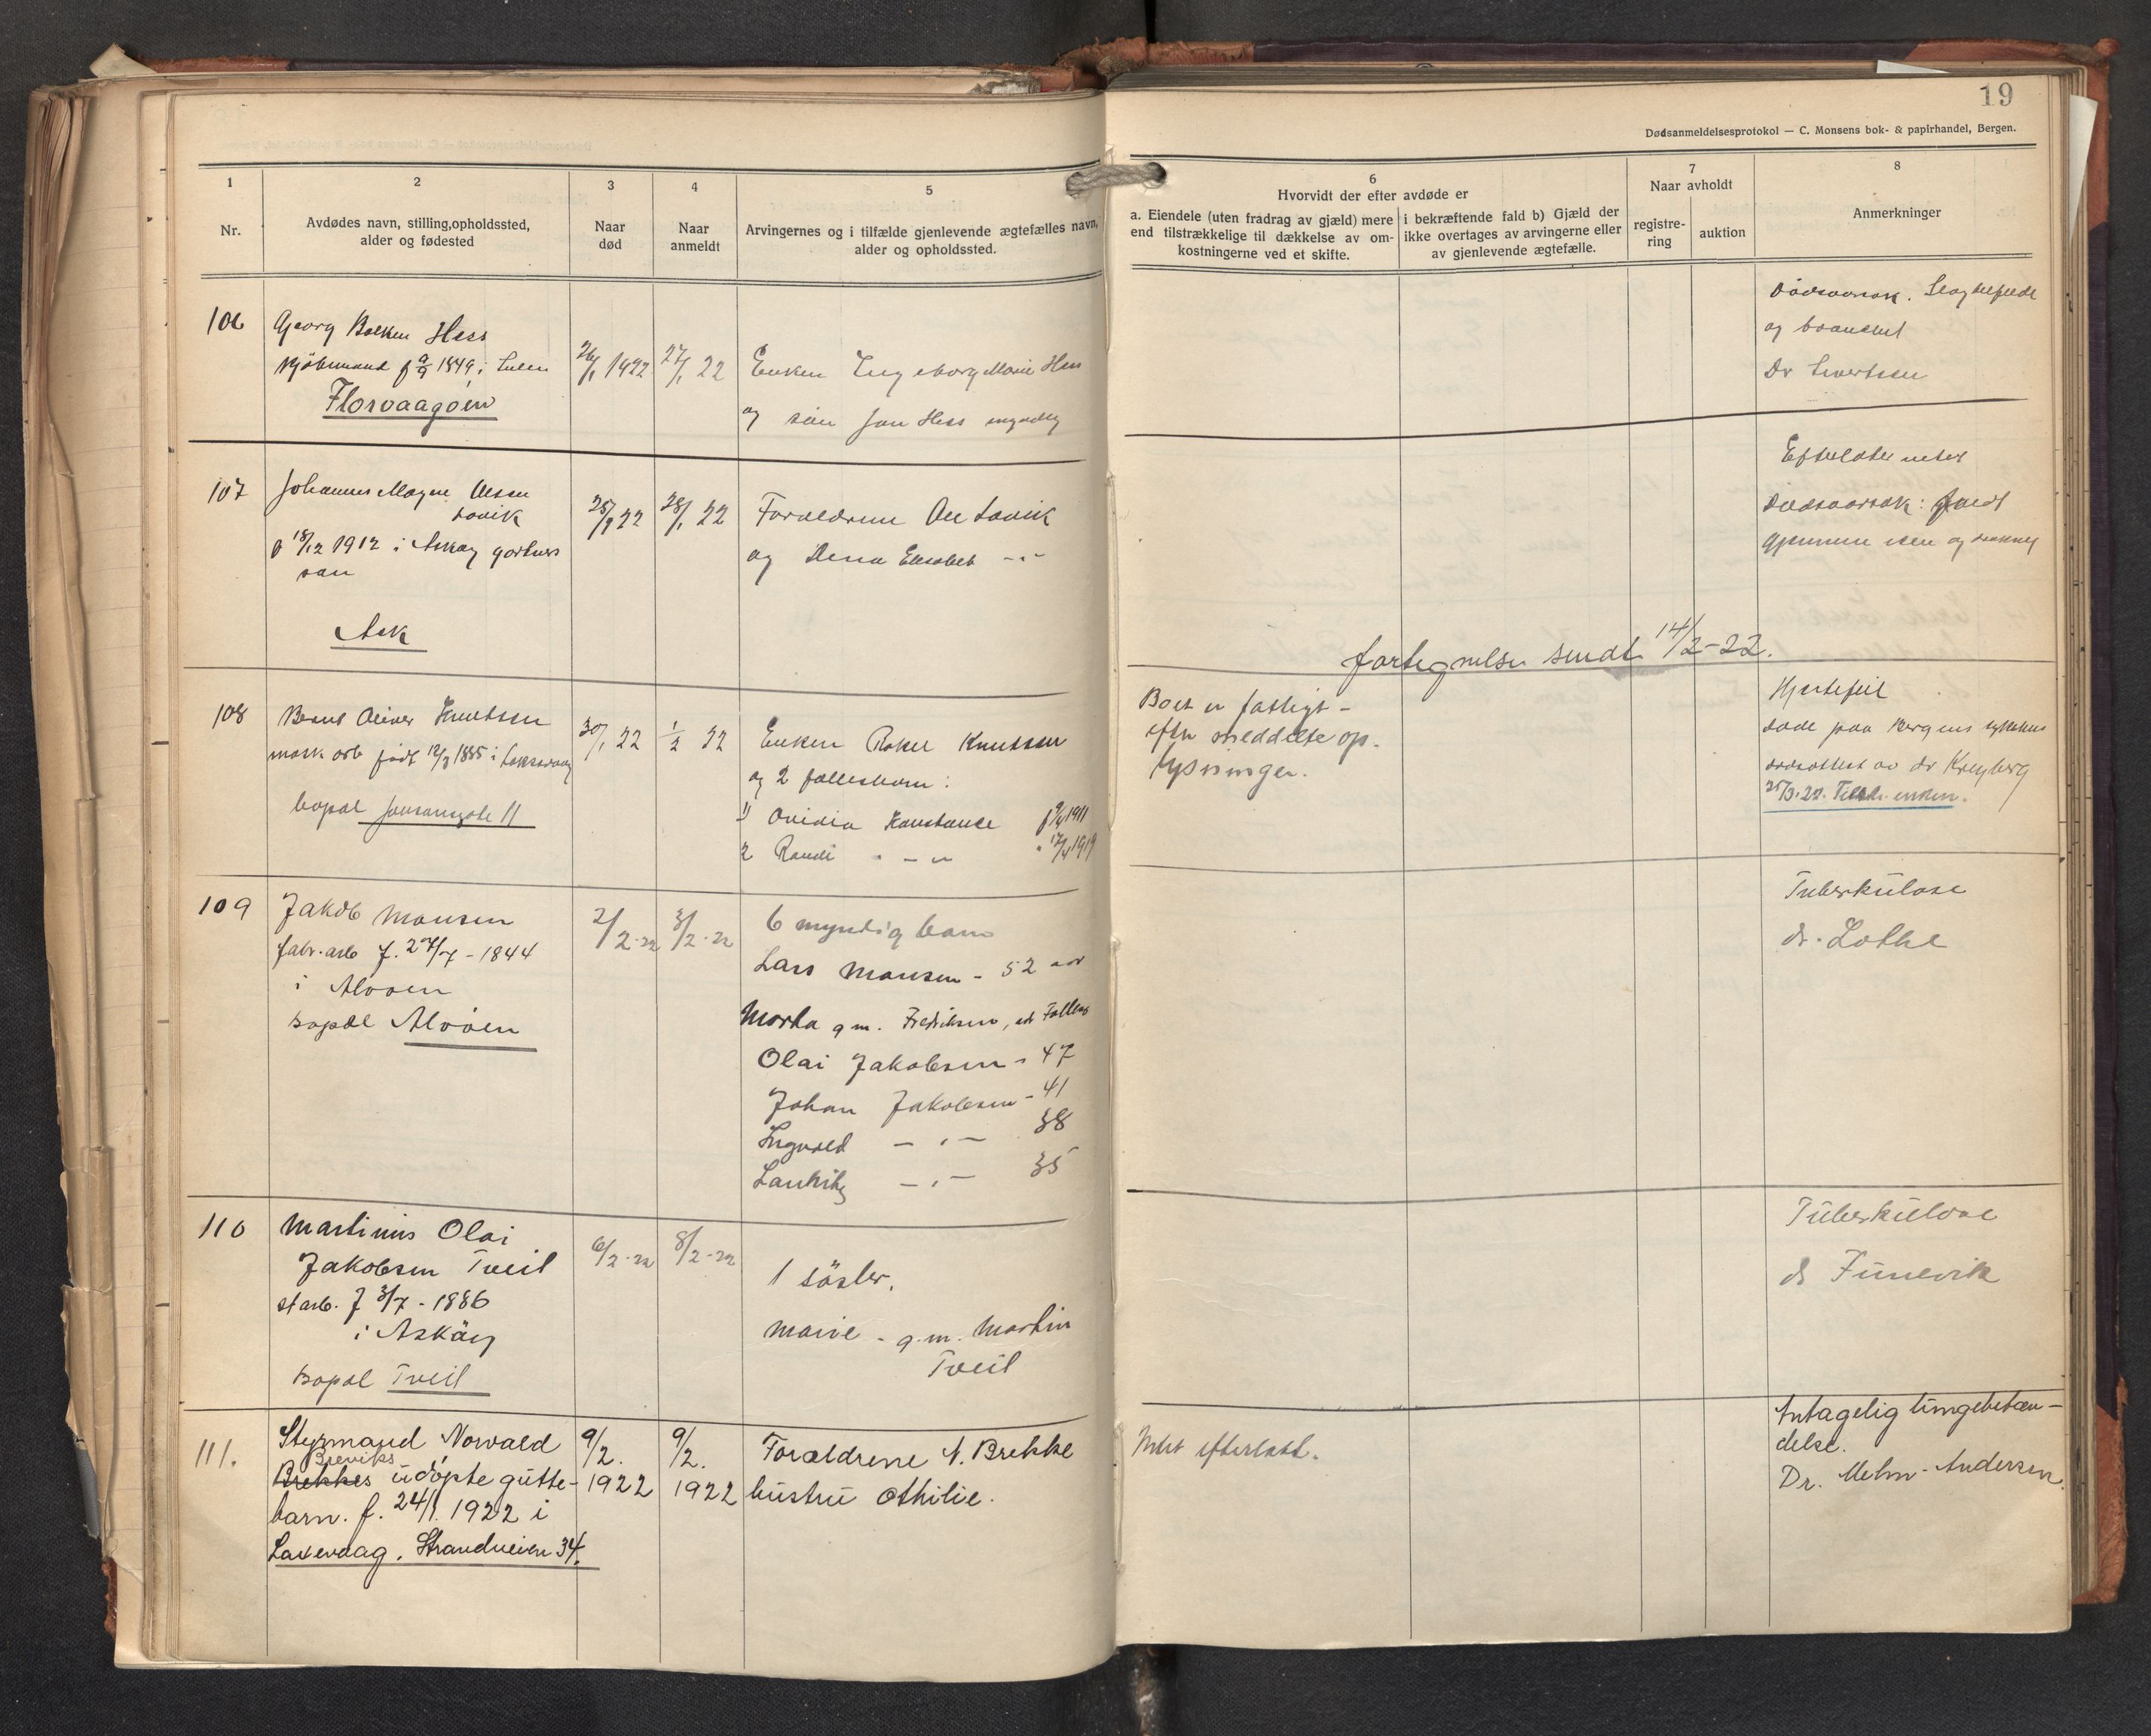 19
Dødsanmeldelsesprotokol — C. Monsens bok- & papirhandel, Bergen.
1
Nr.
2
Avdødes navn, stilling, opholdssted,
alder og fødested
3
Naar
død
4
Naar
anmeldt
5
Arvingernes og i tilfælde gjenlevende ægtefælles navn,
alder og opholdssted.
6
Hvorvidt der efter avdøde er
a. Eiendele (uten fradrag av gjæld) mere
end tilstrækkelige til dækkelse av om-
kostningerne ved et skifte.
i bekræftende fald b) Gjæld der
ikke overtages av arvingerne eller
av gjenlevende ægtefælle.
7
Naar avholdt
registre-
ring
auktion
8
Anmerkninger
106
Georg Hess
f 1849 i
Florvaagøen
26/1 1922
27/1 22
Enken Ingeborg Marie Hess
og søn Jan Hess myndig
Dødsaarsak.
og
Dr
107
Johannes Magne Olsen
f 18/12 1912 i Askøy gartners
søn
Ask
22
28/1 22
Forældrene Ole
og Elisabet -"-
Dødsaarsak: faldt
gjennem isen og
fortegnelse sendt 14/2-22.
108
Bernt Oliver Knutsen
mask arb født 1885 i Laksevaag
bopæl 11
30/1 22
1/2 22
Enken Rakel Knutsen
og 2 fællesbarn:
1) Ovidia Konstance 1911
2 Randi " - " 1919
Boet er fattigt -
efter meddelte op-
lysninger.
Hjertefeil
døde paa Bergens sykehus
dødsattest av dr Kreyberg
enken.
109
Jakob Monsen
fabr. arb f. 27/7 - 1844
i Alvøen
bopæl Alvøen
2/2-22
3/2-22
6 myndig barn
Lars Monsen - 52 aar
Marta g.m. Fredriksen,
Olai Jakobsen - 47
Johan Jakobsen - 41
Ingvald - " - 38
- " - 35
Tuberkulose
dr. Lothe
110
Martinus Olai
Jakobsen Tveit
f 3/7 - 1886
i Askøy
bopæl Tveit
6/2-22
8/2-22
1 søster.
Marie - g.m. Martin
Tveit
Tuberkulose
dr
111.
Styrmand Norvald
Breviks
Brekkes udøpte gutte-
barn. f. 24/1. 1922 i
Laxevaag. Strandveien 34.
9/2.
1922
9/2.
1922
Forældrene N. Brekke
hustru Othilie.
Intet efterladt.
Antagelig lungebetæn-
delse.
Dr. Andersen.